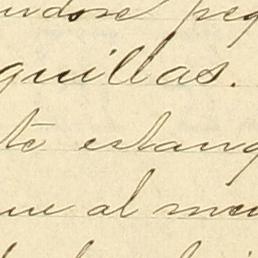 ndose peq
quillas.
te estanq
ue al men